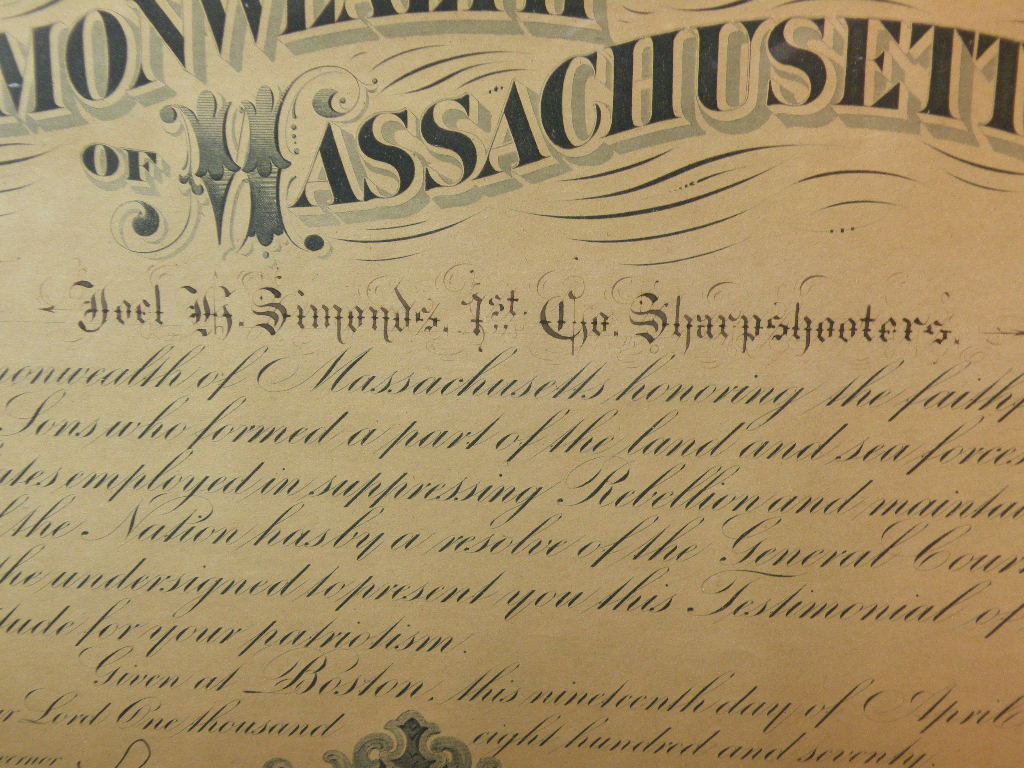 MONWEALTH
OF MASSACHUSETT
Joel H. Simonds. 1st. Co. Sharpshooters.
monwealth of Massachusetts honoring the faithf
Sons who formed a part of the land and sea forces
ates employed in suppressing Rebellion and maintai
f the Nation has by a resolve of the General Cour
he undersigned to present you this Testimonial of
itude for your patriotism.
Given at Boston, this nineteenth day of April
ur Lord One thousand eight hundred and seventy.